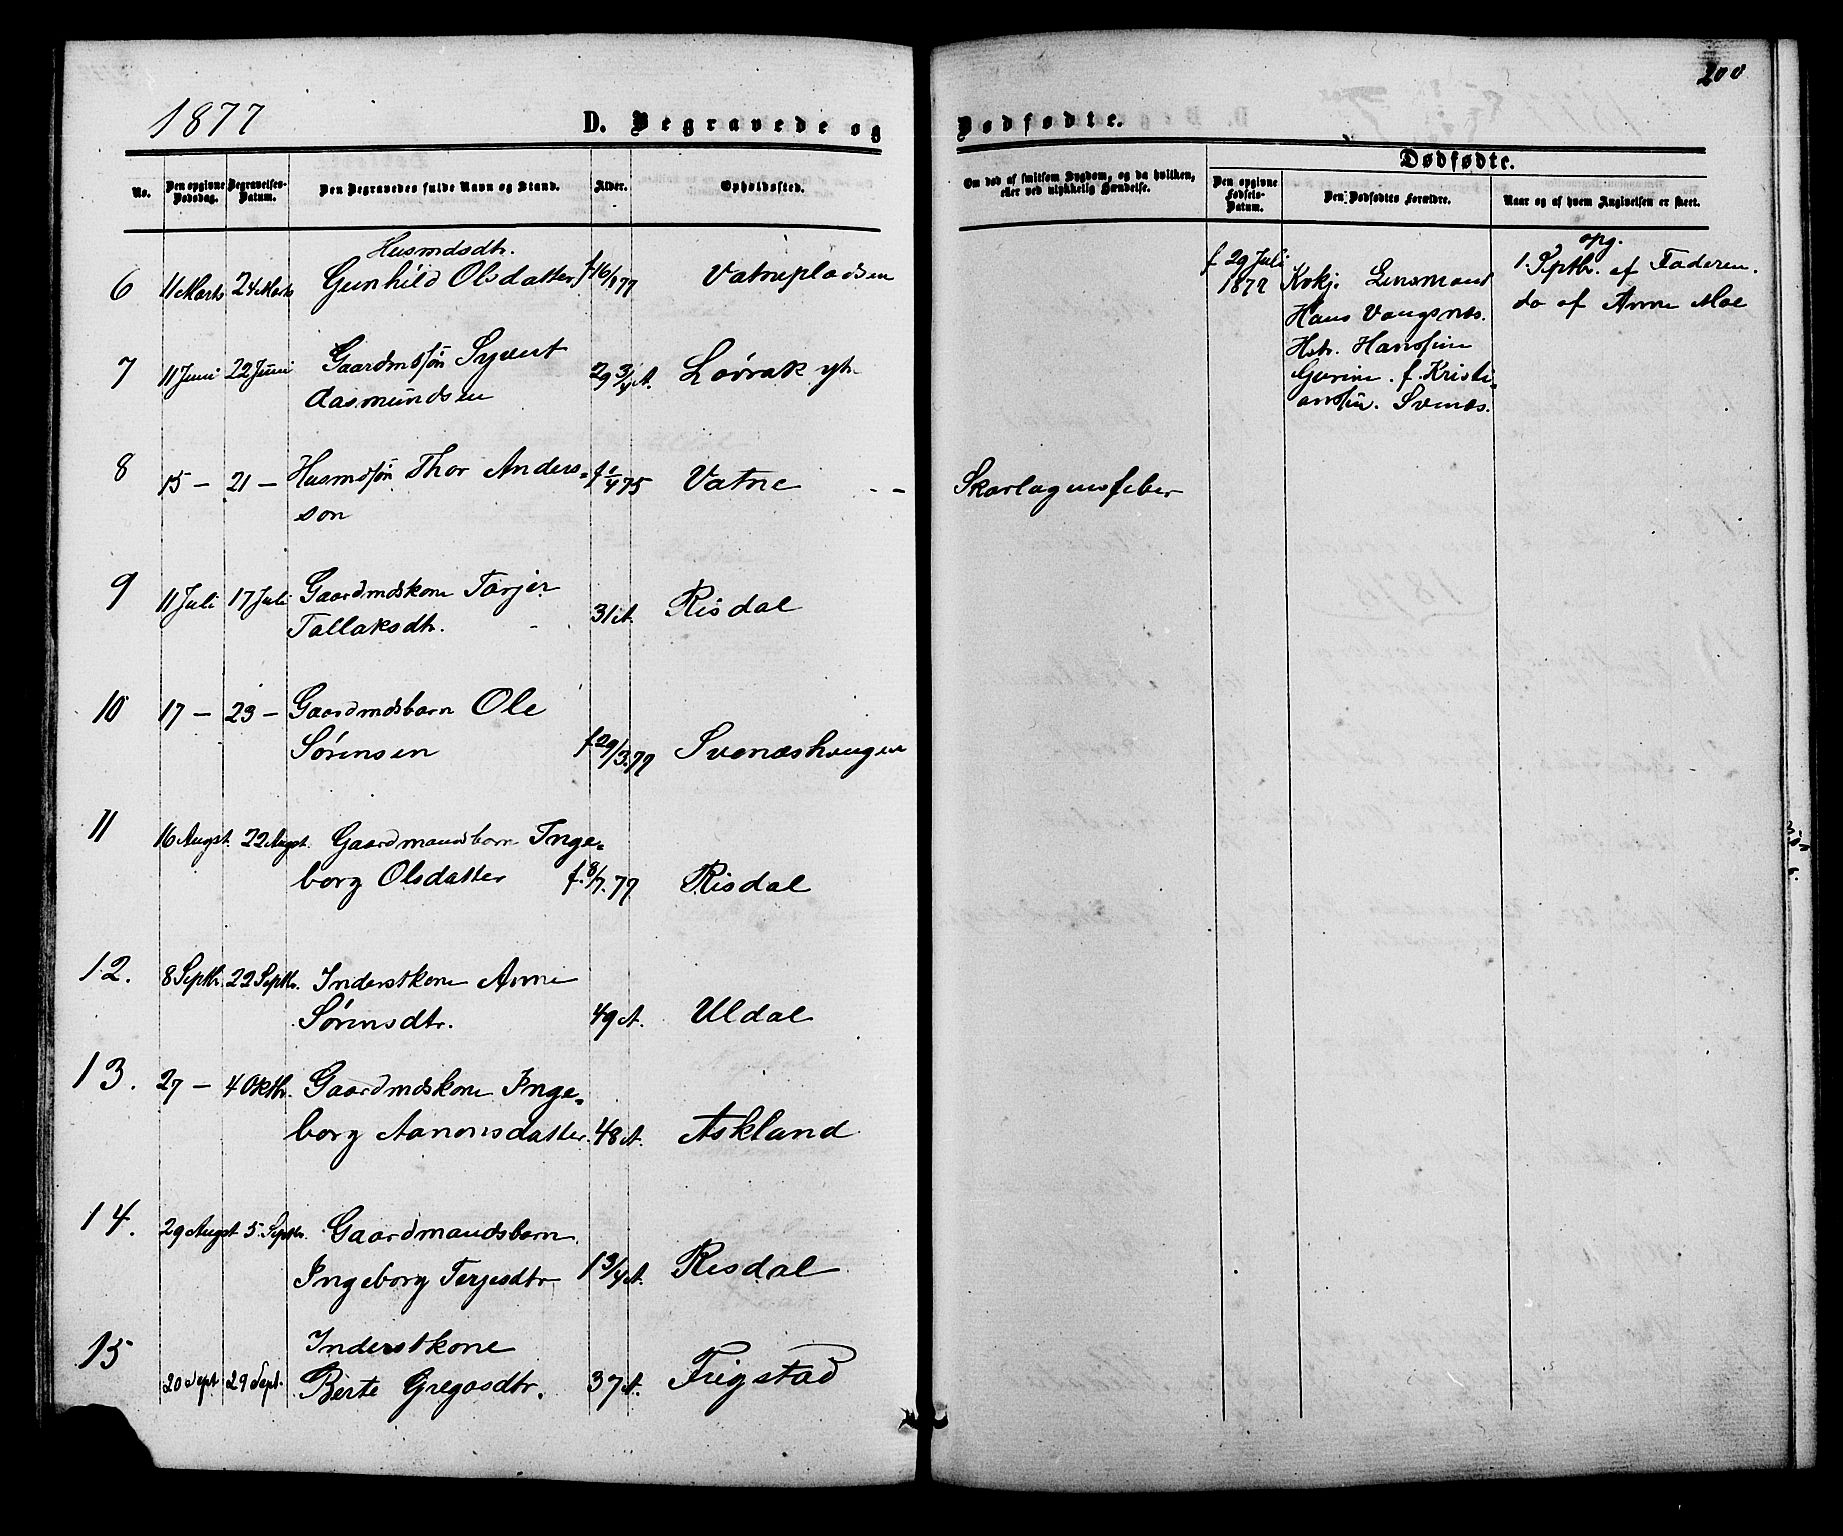 200
1877
D. Begravede og
Dødfødte.
No.
Den opgivne Dødsdag.
Begravelses-Datum.
Den Begravedes fulde Navn og Stand.
Alder.
Opholdssted.
Om død af smitsom Sygdom, og da hvilken,
eller ved ulykkelig Hændelse.
Dødfødte.
Den opgivne Fødsels-Datum.
Den Dødfødtes Forældre.
Naar og af hvem Angivelsen er skeet.
Husmdsdtr.
6 11 Marts 24 Marts Gunhild Olsdatter f 16/1 77 Vatnepladsen
7 11 Juni 22 Juni Gaardmdsøn Syvert
Aasmundsen 29 3/4 A. Lövrak yt.
8 15 — 21 — Husmdsøn Thor Anders-
son f 1/4 75 Vatne - - Skarlagensfeber
9 11 Juli 17 Juli Gaardmdskone Tarjer
Tallaksdtr. 31 A. Risdal
10 17 — 23 — Gaardmdsbarn Ole
Sørensen f 29/3.77 Svenæshaugen
11 16 Augst. 22 Augst. Gaardmandsbarn Inge-
borg Olsdatter f. 8/7. 77 Risdal
12. 8 Septbr. 22 Septbr. Inderstkone Anne
Sørensdtr. 49 A. Uldal
13. 27 — 4 Oktbr. Gaardmdskone Inge-
borg Aanonsdatter 48 A. Askland
14. 29 Augst 5. Septbr. Gaardmandsbarn
Ingeborg Terjesdtr 1 3/4 A. Risdal
15 Inderstkone
20 Sept 29 Sept. Berte Gregasdtr. 37 A. Frigstad
f 29 Juli
1877
Kokj. Lensmand
Hans Vangsnes.
Hstr. Hansine
Gurine. f. Kristi-
ansen. Svenæs.
opg.
1. Sptbr. af Faderen.
do af Anne Moe